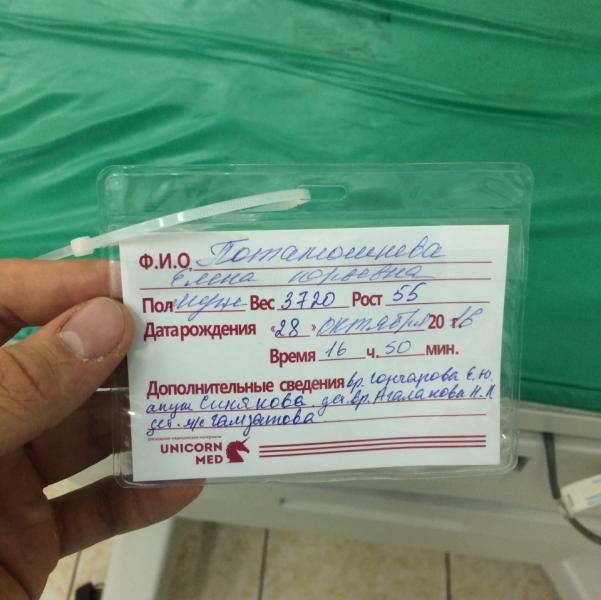 Ф.И.О Поташешнева
Елена Юрьевна
Пол муж Вес 3720 Рост 55
Дата рождения «28» октября 2016
Время 16 ч. 50 мин.
Дополнительные сведения вр. Гончарова Е.Ю.
акуш Синякова. дет вр. Агалакова Н.П
дет. м/с Гамзатова
расходные медицинские материалы
UNICORN
MED